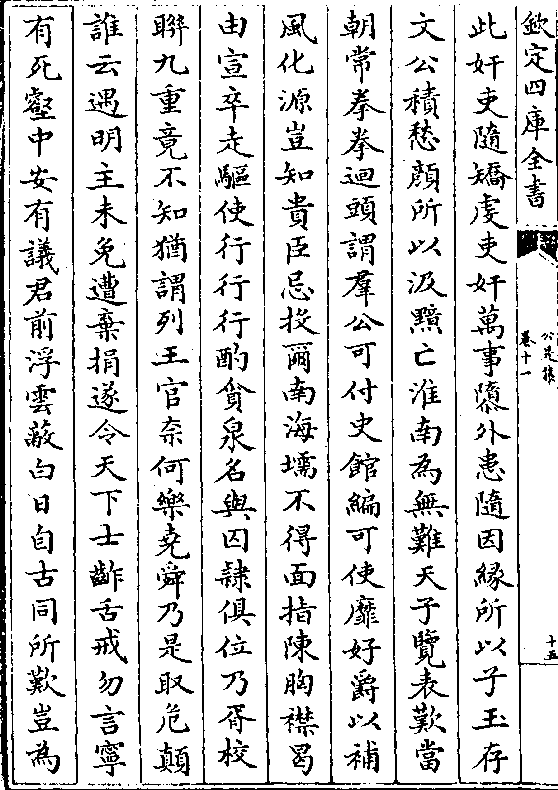 欽定四庫全書
公是集
卷十一
十五
此奸吏隨矯虔吏奸萬事隳外患隨因緣所以子玉存
文公積愁顔所以汲黯亡淮南為無難天子覽表歎當
朝常拳拳迴頭謂羣公可付史館編可使靡好爵以補
風化源豈知貴臣忌投爾南海壖不得面指陳胸襟曷
由宣卒走驅使行行行酌貪泉名與囚隸俱位乃胥校
聯九重竟不知猶謂列王官奈何樂堯舜乃是取危顛
誰云遇明主未免遭棄捐遂令天下士齰舌戒勿言寧
有死壑中安有議君前浮雲蔽白日自古同所歎豈為